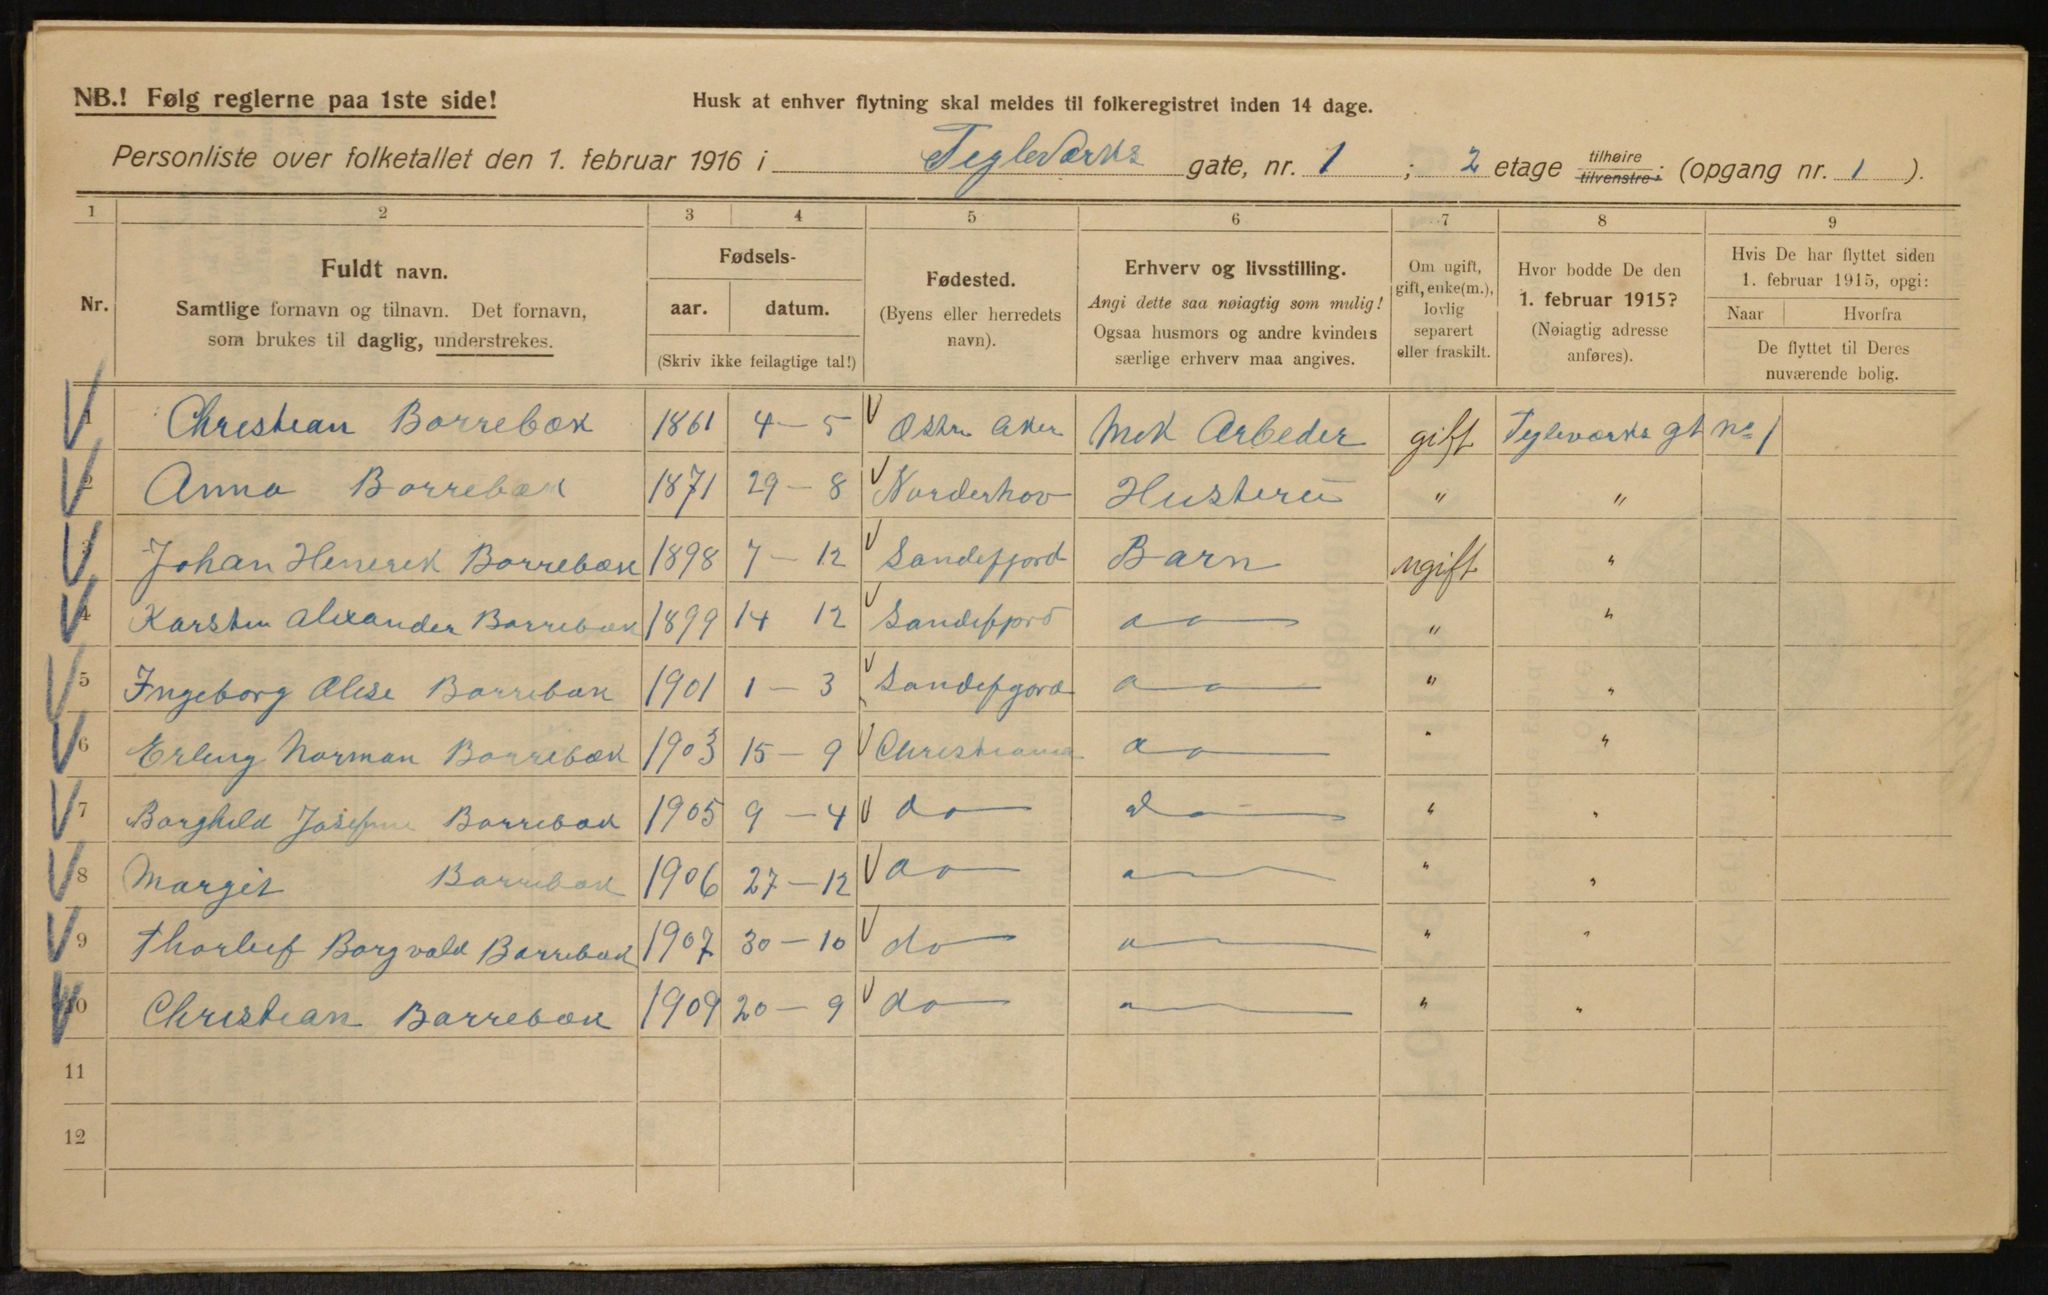 NB.! Følg reglerne paa 1ste side!
Husk at enhver flytning skal meldes til folkeregistret inden 14 dage.
Personliste over folketallet den 1. februar 1916 i Tegleværks gate, nr. 1 ; 2 etage tilhøire tilvenstre; (opgang nr. 1 ).
1 2 3 4 5 6 7 8 9
Nr.
Fuldt navn.
Samtlige fornavn og tilnavn. Det fornavn,
som brukes til daglig, understrekes.
Fødsels-
aar. datum.
(Skriv ikke feilagtige tal!)
Fødested.
(Byens eller herredets
navn).
Erhverv og livsstilling.
Angi dette saa nøiagtig som mulig!
Ogsaa husmors og andre kvinders
særlige erhverv maa angives.
Om ugift,
gift, enke(m.),
lovlig
separert
eller fraskilt.
Hvor bodde De den
1. februar 1915?
(Nøiagtig adresse
anføres).
Hvis De har flyttet siden
1. februar 1915, opgi:
Naar Hvorfra
De flyttet til Deres
nuværende bolig.
1 Christian Borrebæk 1861 4 – 5 Østre Aker Mek Arbeder gift Tegleværks gt No 1
2 Anna Borrebæk 1871 29 – 8 Norderhov Husteru " "
3 Johan Henerek Borrebæk 1898 7 – 12 Sandefjord Barn ugift "
4 Karsten Alexander Borrebæk 1899 14 12 Sandefjord do " "
5 Ingeborg Alise Borrebæk 1901 1 – 3 Sandefjord do " "
6 Erling Norman Borrebæk 1903 15 – 9 Christiania do " "
7 Borghild Josefine Borrebæk 1905 9 – 4 do do " "
8 Margit Borrebæk 1906 27 – 12 do " " "
9 Thorleif Borgvald Borrebæk 1907 30 – 10 do " " "
10 Christian Borrebæk 1909 20 – 9 do " " "
11
12